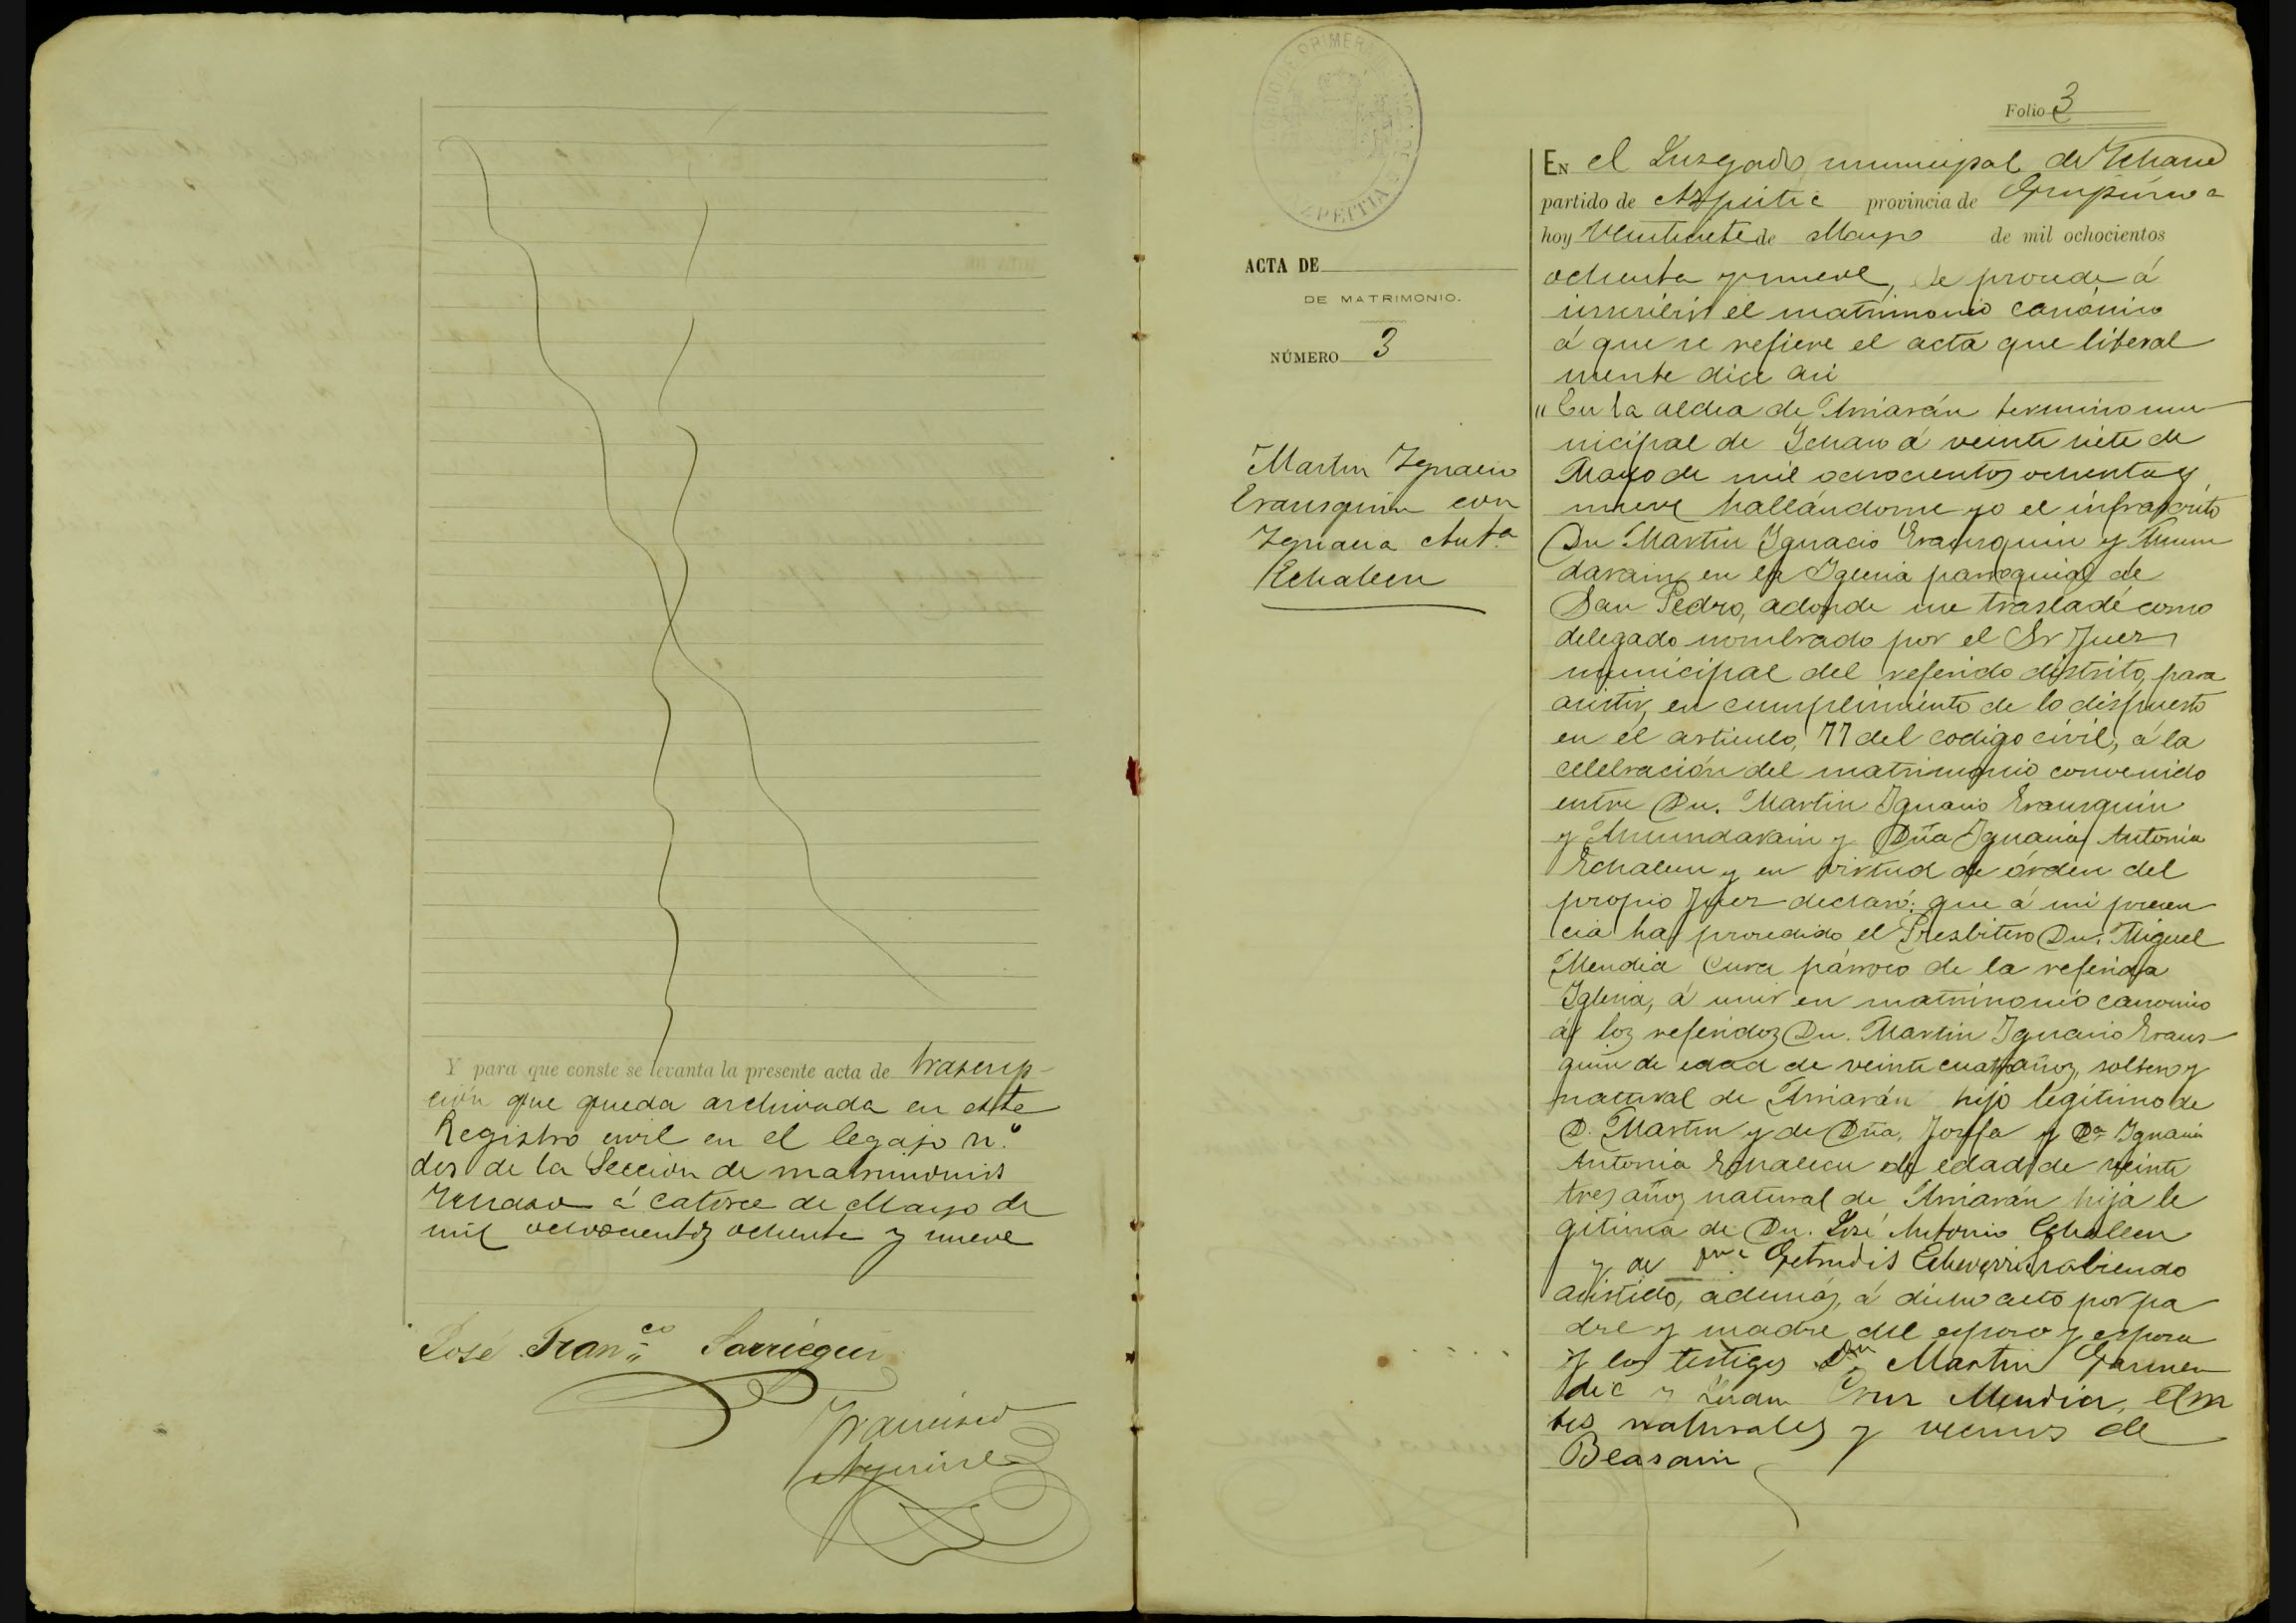 Y para que conste se levanta la presente acta de trascrip-
ción que queda archivada en este
Registro civil en el legajo n.º
dos de la Sección de matrimonios
Ichaso á catorce de Mayo de
mil ochocientos ochenta y nueve
José Fran.co Sarriegui
Francisco
Aguirre
PRIMERA
AZPEITIA
Folio 3
EN el Juzgado municipal de Ichaso
partido de Azpeitia provincia de Guipúzcoa
hoy Veintisiete de Mayo de mil ochocientos
ochenta y nueve, se procede á
inscribir el matrimonio canónico
á que se refiere el acta que literal
mente dice asi
ACTA DE
DE MATRIMONIO.
NÚMERO 3
Martin Ignacio
Erausquin con
Ignacia Ant.a
Echalecu
"En la aldea de Arriarán termino mu-
nicipal de Ichaso á veinte siete de
Mayo de mil ochocientos ochenta y
nueve hallándome yo el infrascrito
Dn Martin Ignacio Erausquin y Amun
darain en la Iglesia parroquial de
San Pedro, adonde me trasladé como
delegado nombrado por el Sr Juez
municipal del referido distrito, para
asistir, en cumplimiento de lo dispuesto
en el articulo, 77 del codigo civil, á la
celebración del matrimonio convenido
entre Dn. Martin Ignacio Erausquin
y Amundarain y Dña Ignacia Antonia
Echalecu y en virtud de órden del
propio Juez declaro: que á mi presen
cia ha procedido el Presbitero Dn. Miguel
Mendia Cura párroco de la referida
Iglesia, á unir en matrimonio canonico
á los referidos Dn. Martin Ignacio Eraus-
quin de edad de veinte cuatro años, soltero y
natural de Arriarán hijo legítimo de
D. Martin y de Dña. Josefa y Da Ignacia
Antonia Echalecu de edad de veinte
tres años natural de Arriarán hija le
gitima de Dn. José Antonio Echalecu
y de Dña Getrudis Echeverria habiendo
asistido, además, á dicho acto por pa
dre y madre del esposo y esposa
y los testigos Dn Martin Garmen
dia y Juan Cruz Mendia, am
bos naturales y vecinos de
Beasain